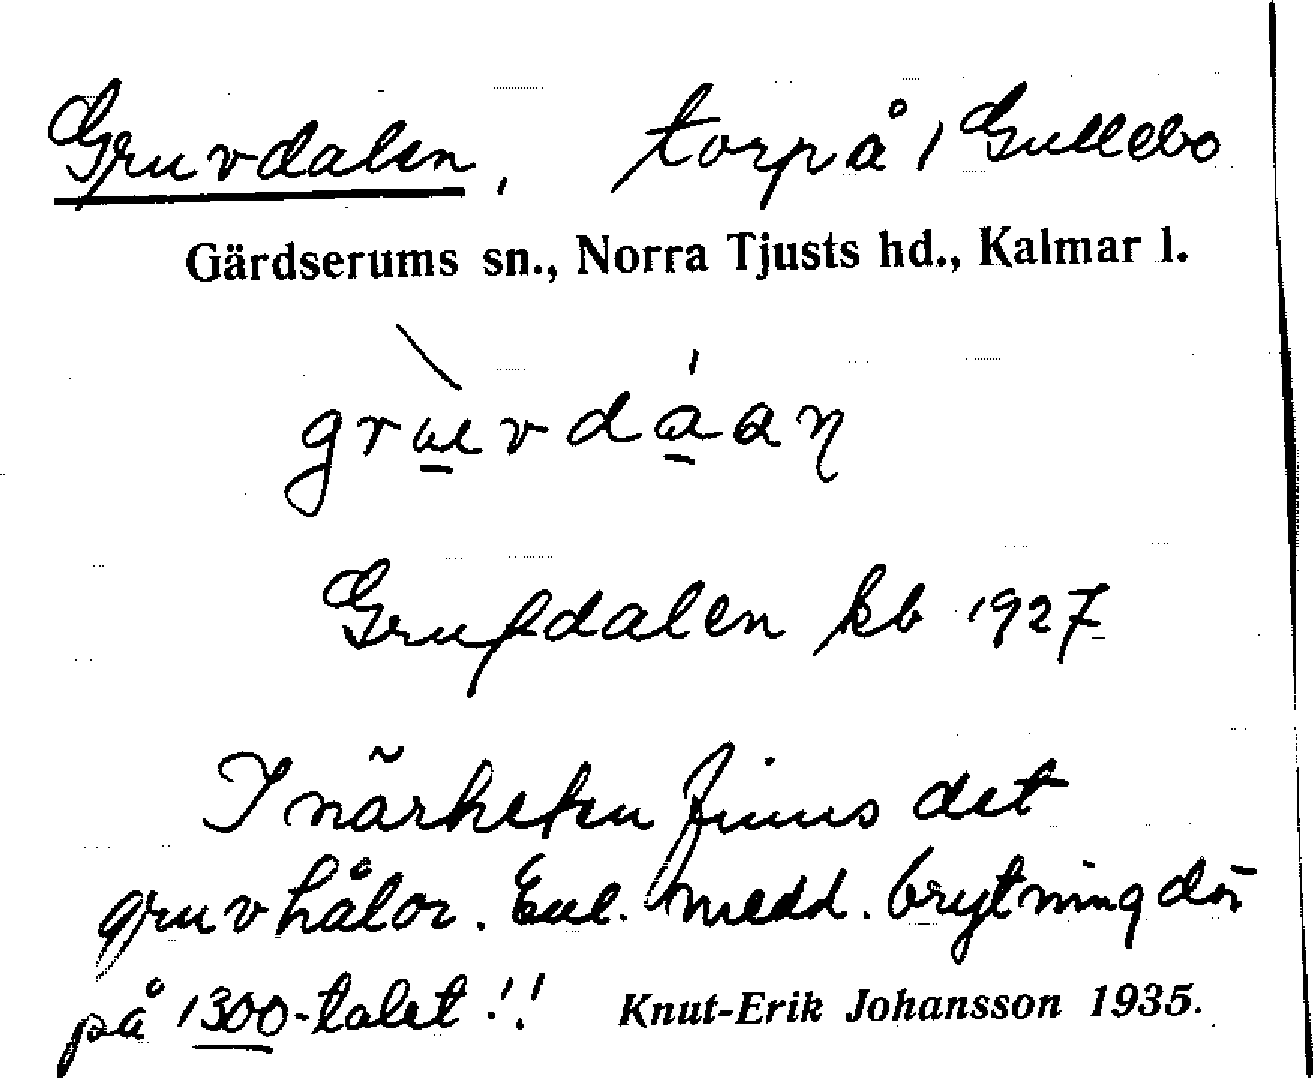 Gruvdalen, torp å 1 Gullebo
Gärdserums sn., Norra Tjusts hd., Kalmar l.
Grufdalen kb 1927
I närheten finns det
gruvhålor. Enl. medd. brytning där
på 1300-talet!!
Knut-Erik Johansson 1935.